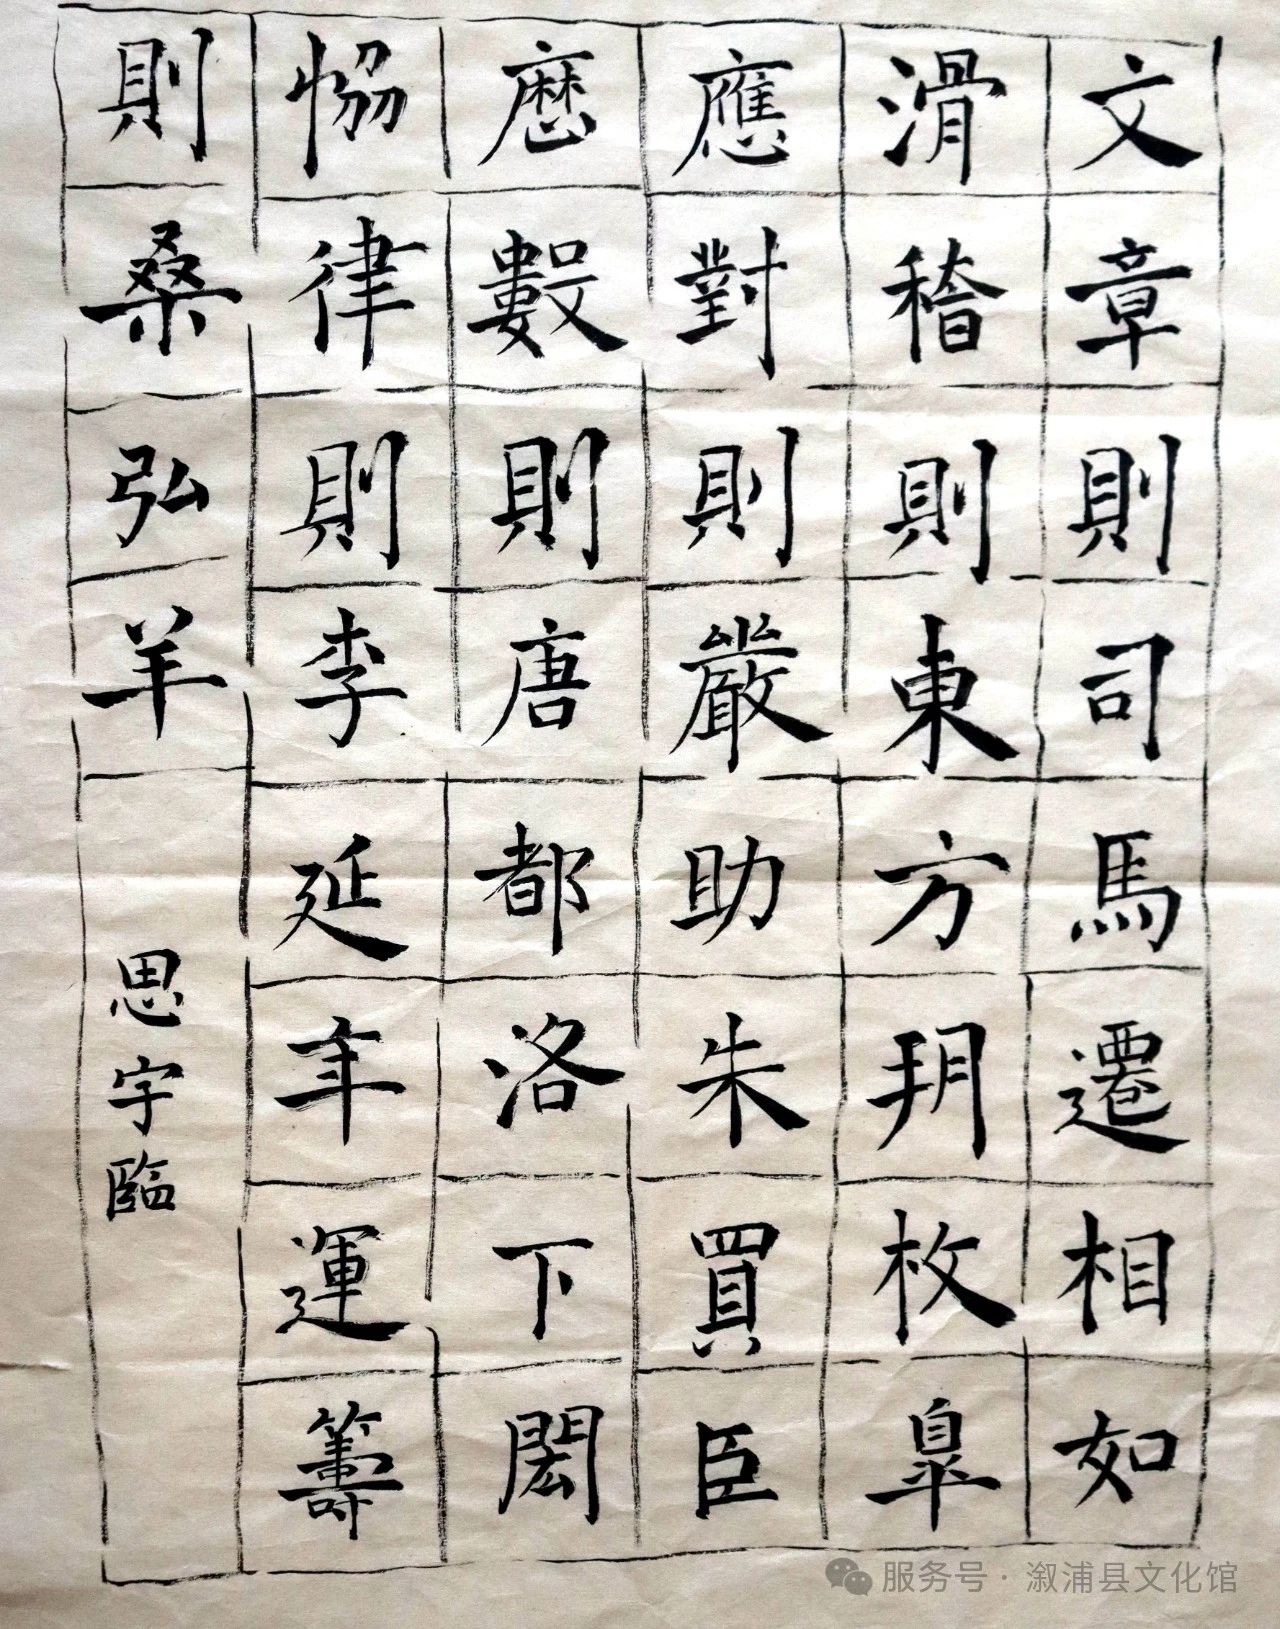 文章則司馬遷相如
滑稽則東方玥枚皐
應對則嚴助朱買臣
歷數則唐都洛下閎
恊律則李延年運籌
則桑弘羊
思宇臨
服务号·溆浦县文化馆